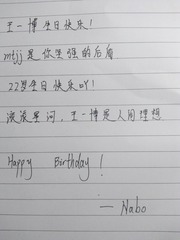 王一博生日快乐!
mtjj是你坚强的后盾
22岁生日快乐吖!
滚滚星河,王一博是人间理想
Happy Birthday!
— Nabo